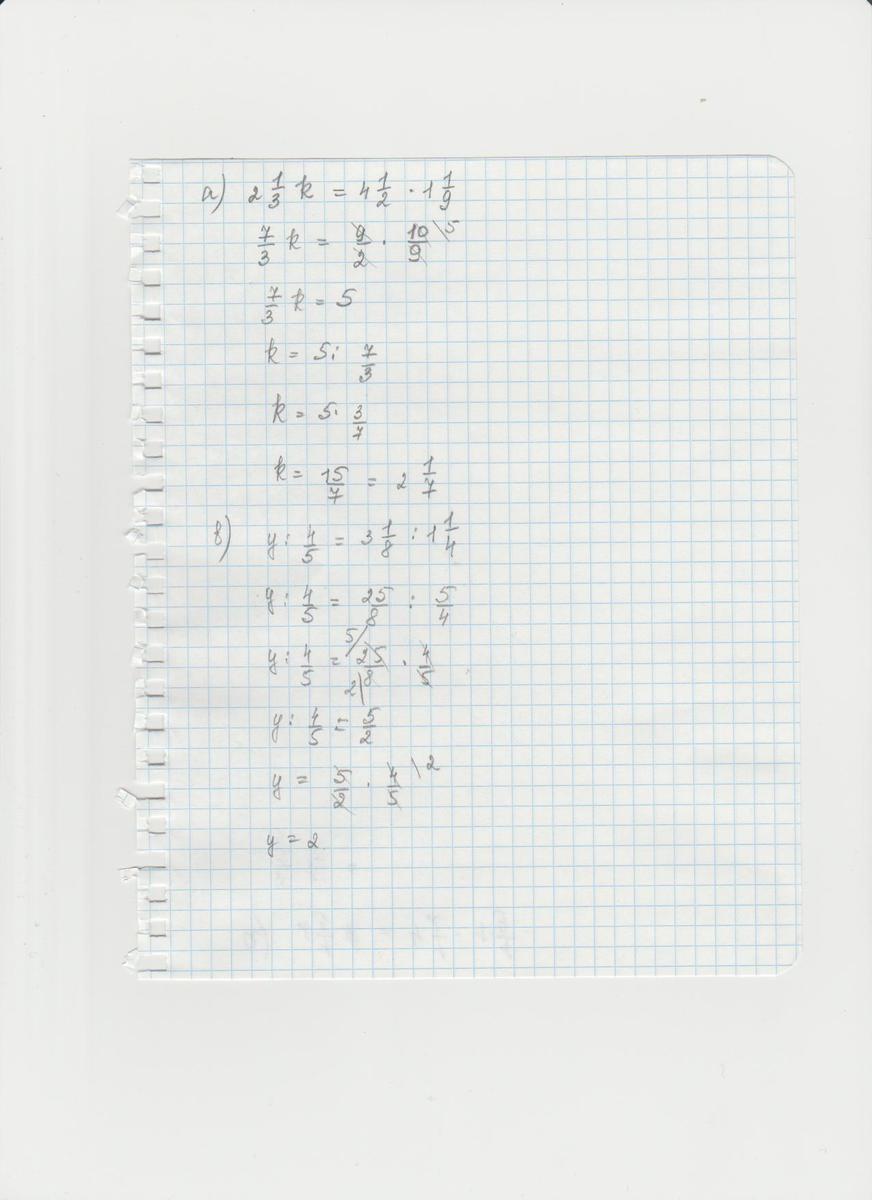 а) 2 1/3 k = 4 1/2 · 1 1/9
7/3 k = 9/2 · 10/9 \5
7/3 k = 5
k = 5 : 7/3
k = 5 · 3/7
k = 15/7 = 2 1/7
в) y : 4/5 = 3 1/8 : 1 1/4
y : 4/5 = 25/8 : 5/4
y : 4/5 = 5/ 25/8 2/ · 4/5
y : 4/5 = 5/2
y = 5/2 · 4/5 \2
y = 2